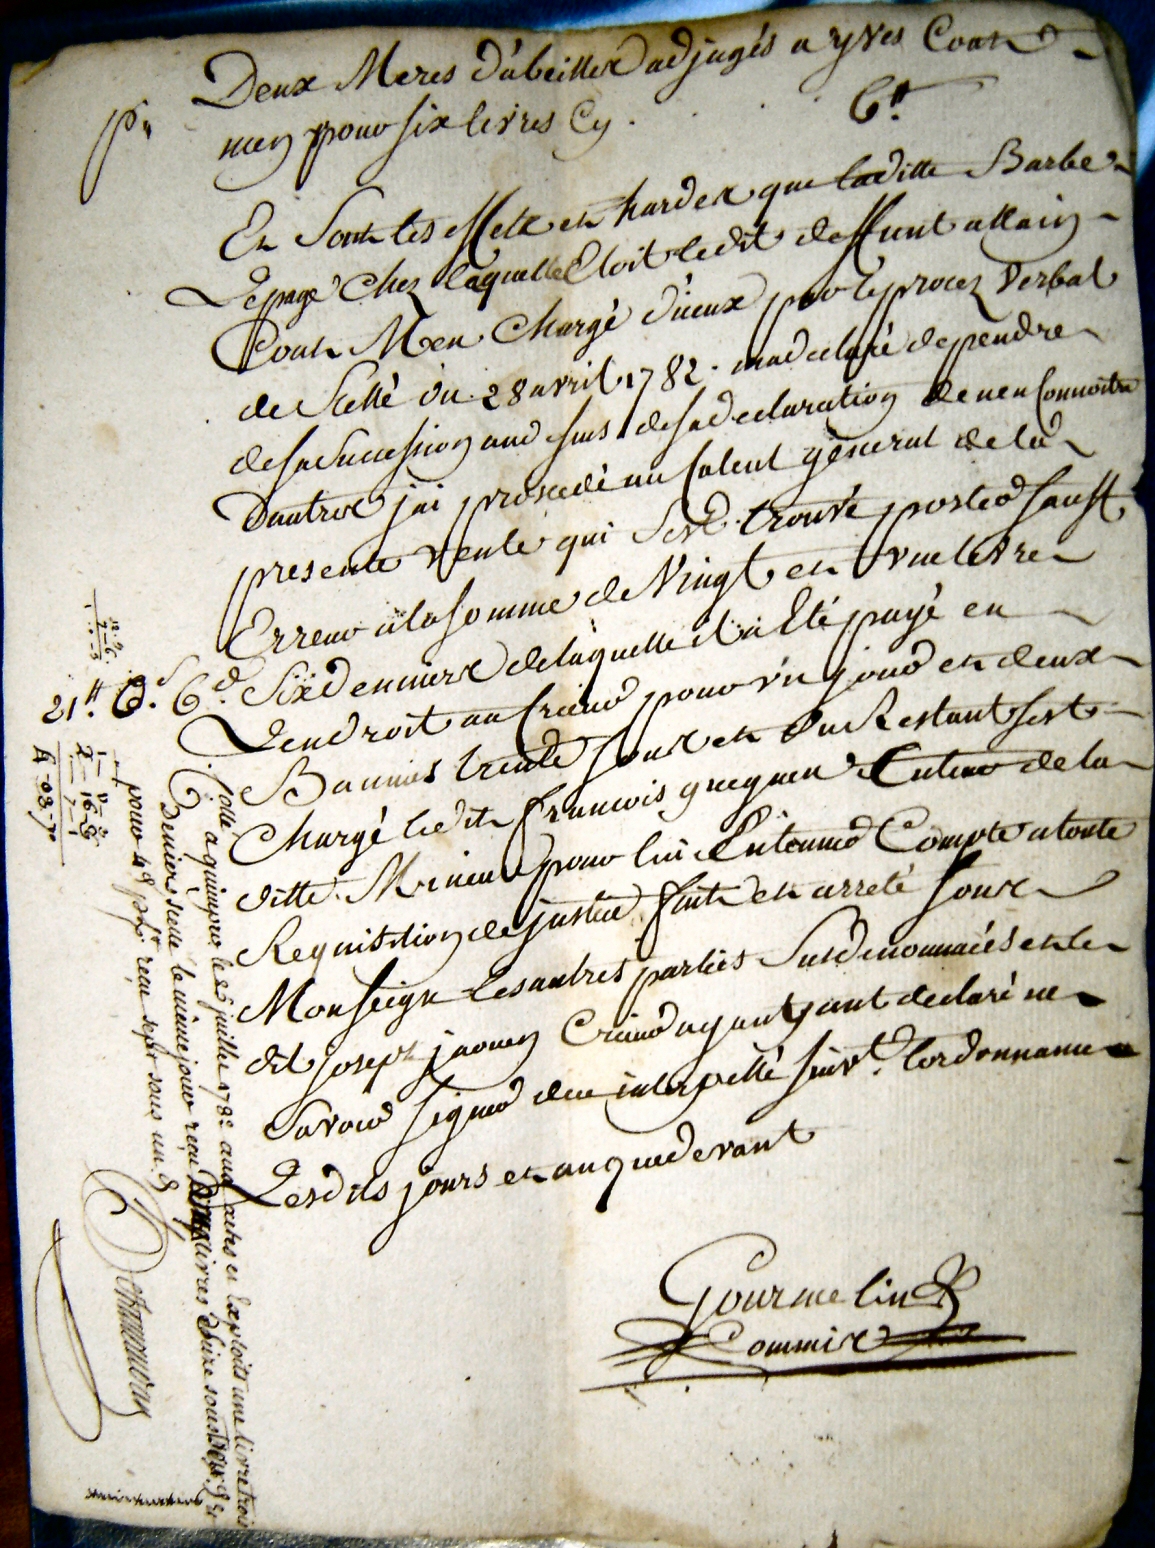 Deux Meres d'abeilles adjugés a yves Coat
men pour six livres Cy . 6ᵗᵗ
Et Sont les Mets et hardes que laditte Barbe
Lepage Chez laquelle Etoit ledit deffunt allain
Coat Men Chargé d'iceux par le procez Verbal
de Scellé du 28 avril 1782. ma declaré dependre
de sa Succession aud sus de sa declaration de nen Connoitre
Dautres jai procedé au Calcul géneral de la
presente vente qui Sest trouvé porter Sauff
Erreur a la Somme de Vingt et une livre
Six deniers de laquelle il a Eté payé en
Lendroit au Crieur pour un jour et deux
Bannies trente Sous et du Restant sest
Chargé ledit francois gueguen Tuteur de la
ditte Mineure pour lui En tenir Compte a toute
Requisition de justice fait et arreté Sous
Mon Seign les autres parties Surdenommées et le
dit joseph jaouen Crieur ayant declaré ne
Savoir signer de ce interpellé suivᵗ. lordonnance
Lesdits jours et an que devant
Gourmelin
Commis
21ᵗᵗ. 0ˢ. 6ᵈ.
a quimper le juillet 1782 aux actes et Exploits une livre trois
Deniers scelle le même jour reçu livres Seize sous
pour 4ˢ pʳ. reçu sept sous un